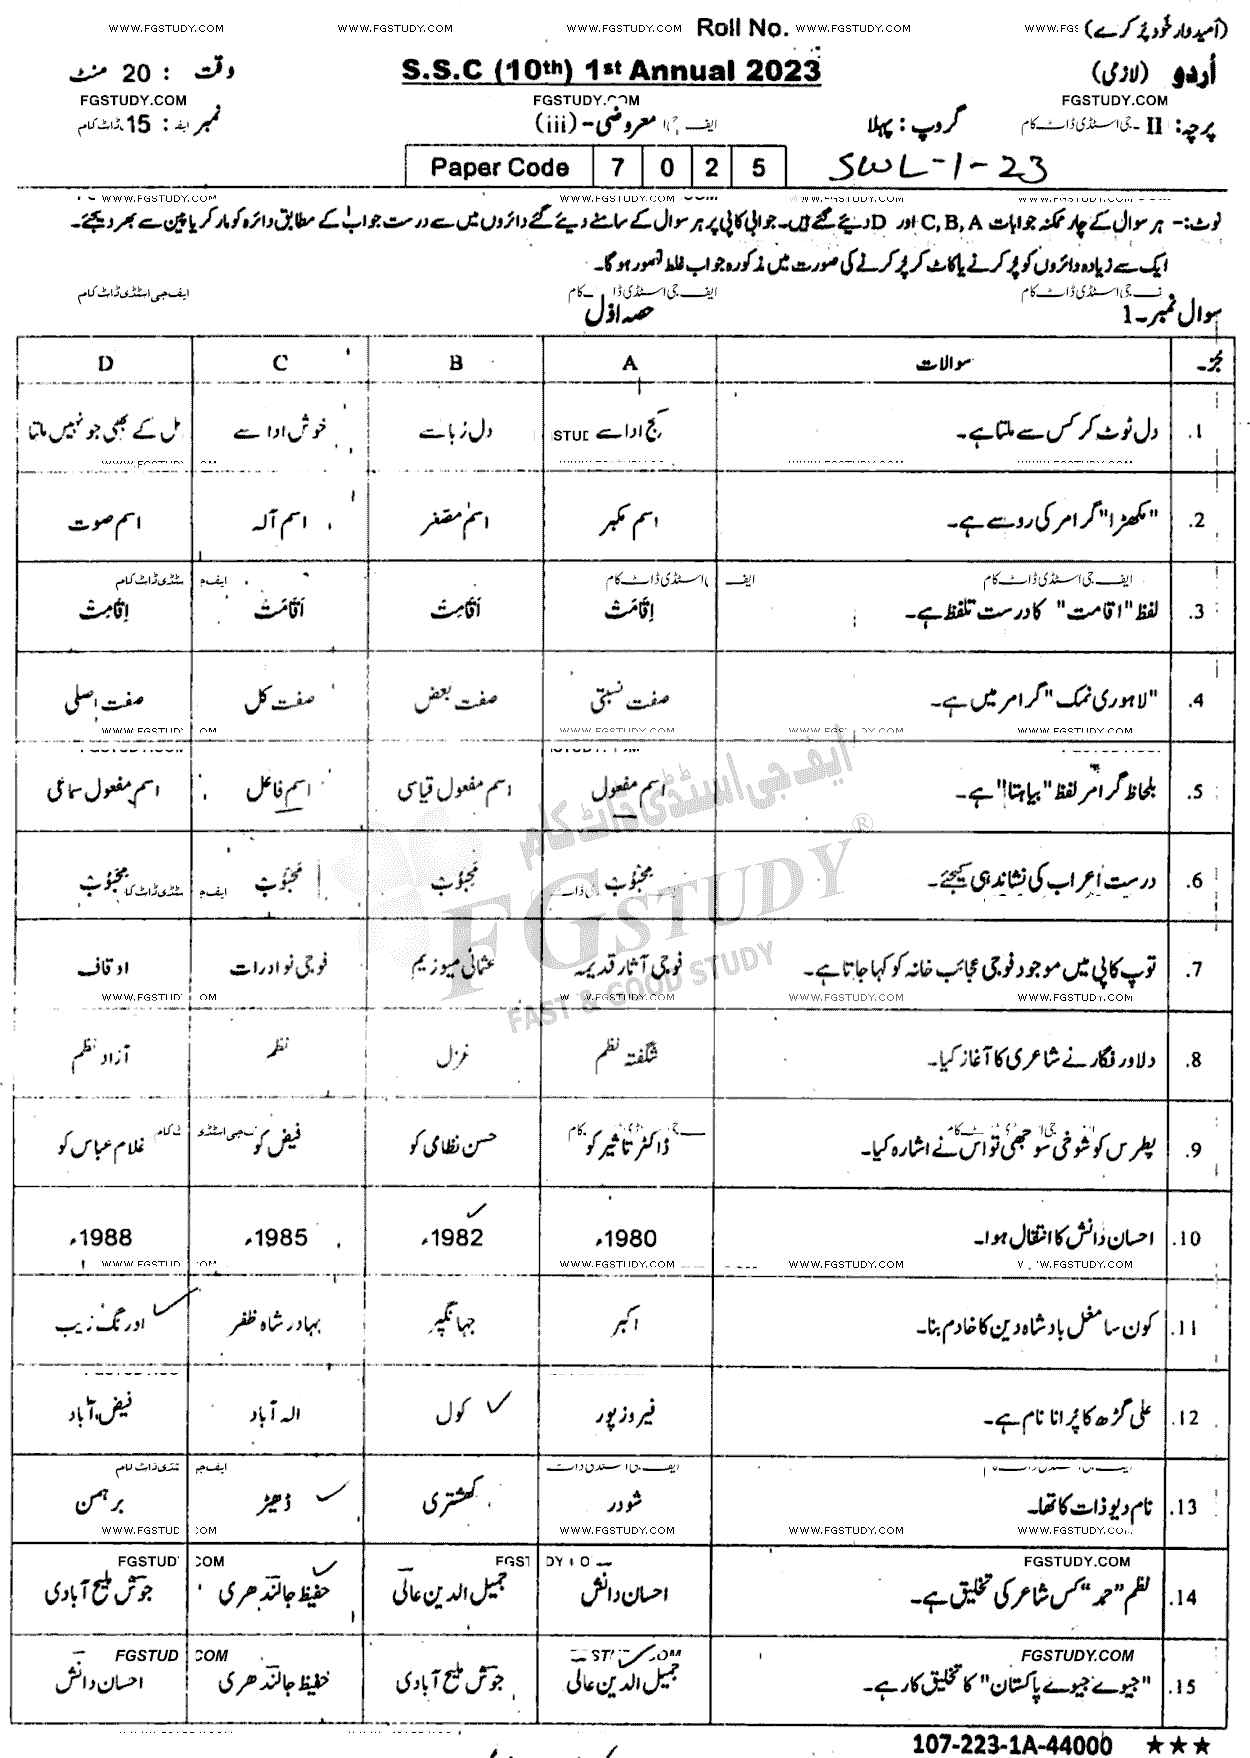 WWW.FGSTUDY.COM WWW.FGSTUDY.COM WWW.FGSTUDY.COM Roll No. WWW.FGSTUDY.COM (امیدوار خود پُر کرے)
اُردو (لازمی) S.S.C (10th) 1st Annual 2023 وقت : 20 منٹ
FGSTUDY.COM FGSTUDY.COM FGSTUDY.COM
پرچہ: II گروپ: پہلا معروضی-(iii) نمبر: 15
Paper Code 7 0 2 5 SWL-1-23
نوٹ:- ہر سوال کے چار ممکنہ جوابات C, B, A اور D دیئے گئے ہیں۔ جوابی کاپی پر ہر سوال کے سامنے دیئے گئے دائروں میں سے درست جواب کے مطابق دائرہ کو مارکر یا پین سے بھر دیجئے۔
ایک سے زیادہ دائروں کو پُر کرنے یا کاٹ کر پُر کرنے کی صورت میں مذکورہ جواب غلط تصور ہوگا۔
سوال نمبر-1 حصہ اوّل
جُز۔ سوالات A B C D
1. دل ٹوٹ کر کس سے ملتا ہے۔ کج ادا سے دل رُبا سے خوش ادا سے مل کے بھی جو نہیں ملتا
2. "مکھڑا" گرامر کی رو سے ہے۔ اسم مکبر اسم مصغر اسم آلہ اسم صوت
3. لفظ "اقامت" کا درست تلفظ ہے۔ اِقَامَتْ اَقَامِتْ اَقَامَتْ اِقَامِتْ
4. "لاہوری نمک" گرامر میں ہے۔ صفت نسبتی صفت بعض صفت کل صفت اصلی
5. بلحاظ گرامر لفظ "بیاہتا" ہے۔ اسم مفعول اسم مفعول قیاسی اسم فاعل اسم مفعول سماعی
6. درست اعراب کی نشاندہی کیجئے۔
7. توپ کاپی میں موجود فوجی عجائب خانہ کو کہا جاتا ہے۔ فوجی آثار قدیمہ عثمانی میوزیم فوجی نوادرات اوقاف
8. دلاور فگار نے شاعری کا آغاز کیا۔ شگفتہ نظم غزل نظم آزاد نظم
9. پطرس کو شوخی سوجھی تو اس نے اشارہ کیا۔ ڈاکٹر تاثیر کو حسن نظامی کو فیض کو غلام عباس کو
10. احسان دانش کا انتقال ہوا۔ 1980ء 1982ء 1985ء 1988ء
11. کون سا مغل بادشاہ دین کا خادم بنا۔ اکبر جہانگیر بہادر شاہ ظفر اورنگ زیب
12. علی گڑھ کا پُرانا نام ہے۔ فیروزپور کول الہ آباد فیض آباد
13. نام دیو ذات کا تھا۔ شودر کھشتری ڈھیڑ برہمن
14. نظم "حمد" کس شاعر کی تخلیق ہے۔ احسان دانش جمیل الدین عالی حفیظ جالندھری جوش ملیح آبادی
15. "جیوے جیوے پاکستان" کا تخلیق کار ہے۔ جمیل الدین عالی جوش ملیح آبادی حفیظ جالندھری احسان دانش
ایف جی اسٹڈی ڈاٹ کام
FGSTUDY®
FAST & GOOD STUDY
107-223-1A-44000 ★★★